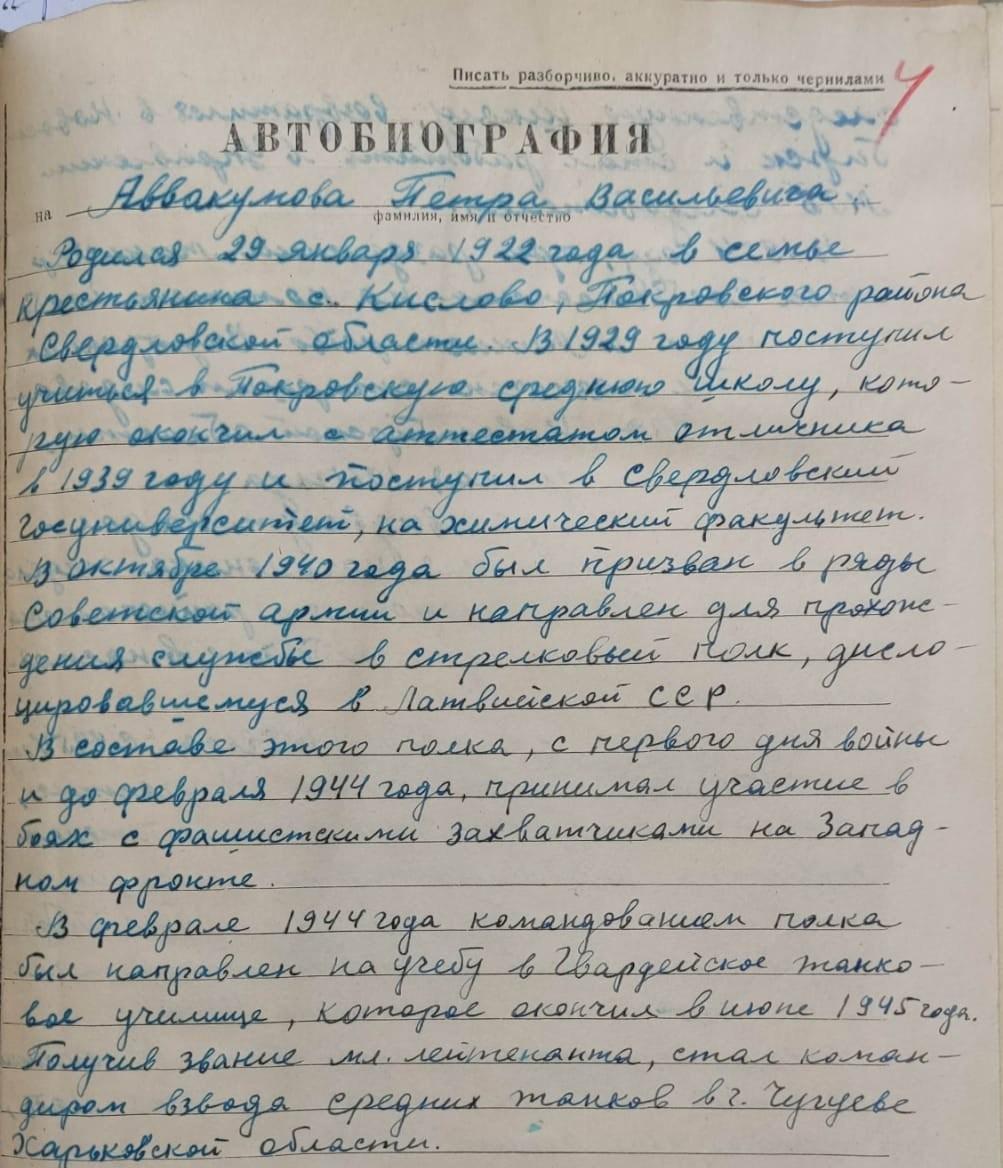 Писать разборчиво, аккуратно и только чернилами
4
АВТОБИОГРАФИЯ
на Аввакумова Петра Васильевича
фамилия, имя и отчество
Родился 29 января 1922 года в семье
крестьянина с. Кислово, Покровского района
Свердловской области. В 1929 году поступил
учиться в Покровскую среднюю школу, кото-
рую окончил с аттестатом отличника
в 1939 году и поступил в Свердловский
госуниверситет, на химический факультет.
В октябре 1940 года был призван в ряды
Советской армии и направлен для прохож-
дения службы в стрелковый полк, дисло-
цировавшемуся в Латвийской ССР.
В составе этого полка, с первого дня войны
и до февраля 1944 года, принимал участие в
боях с фашистскими захватчиками на Запад-
ном фронте.
В феврале 1944 года командованием полка
был направлен на учебу в Гвардейское танко-
вое училище, которое окончил в июне 1945 года.
Получив звание мл. лейтенанта, стал коман-
диром взвода средних танков в г. Чугуеве
Харьковской области.